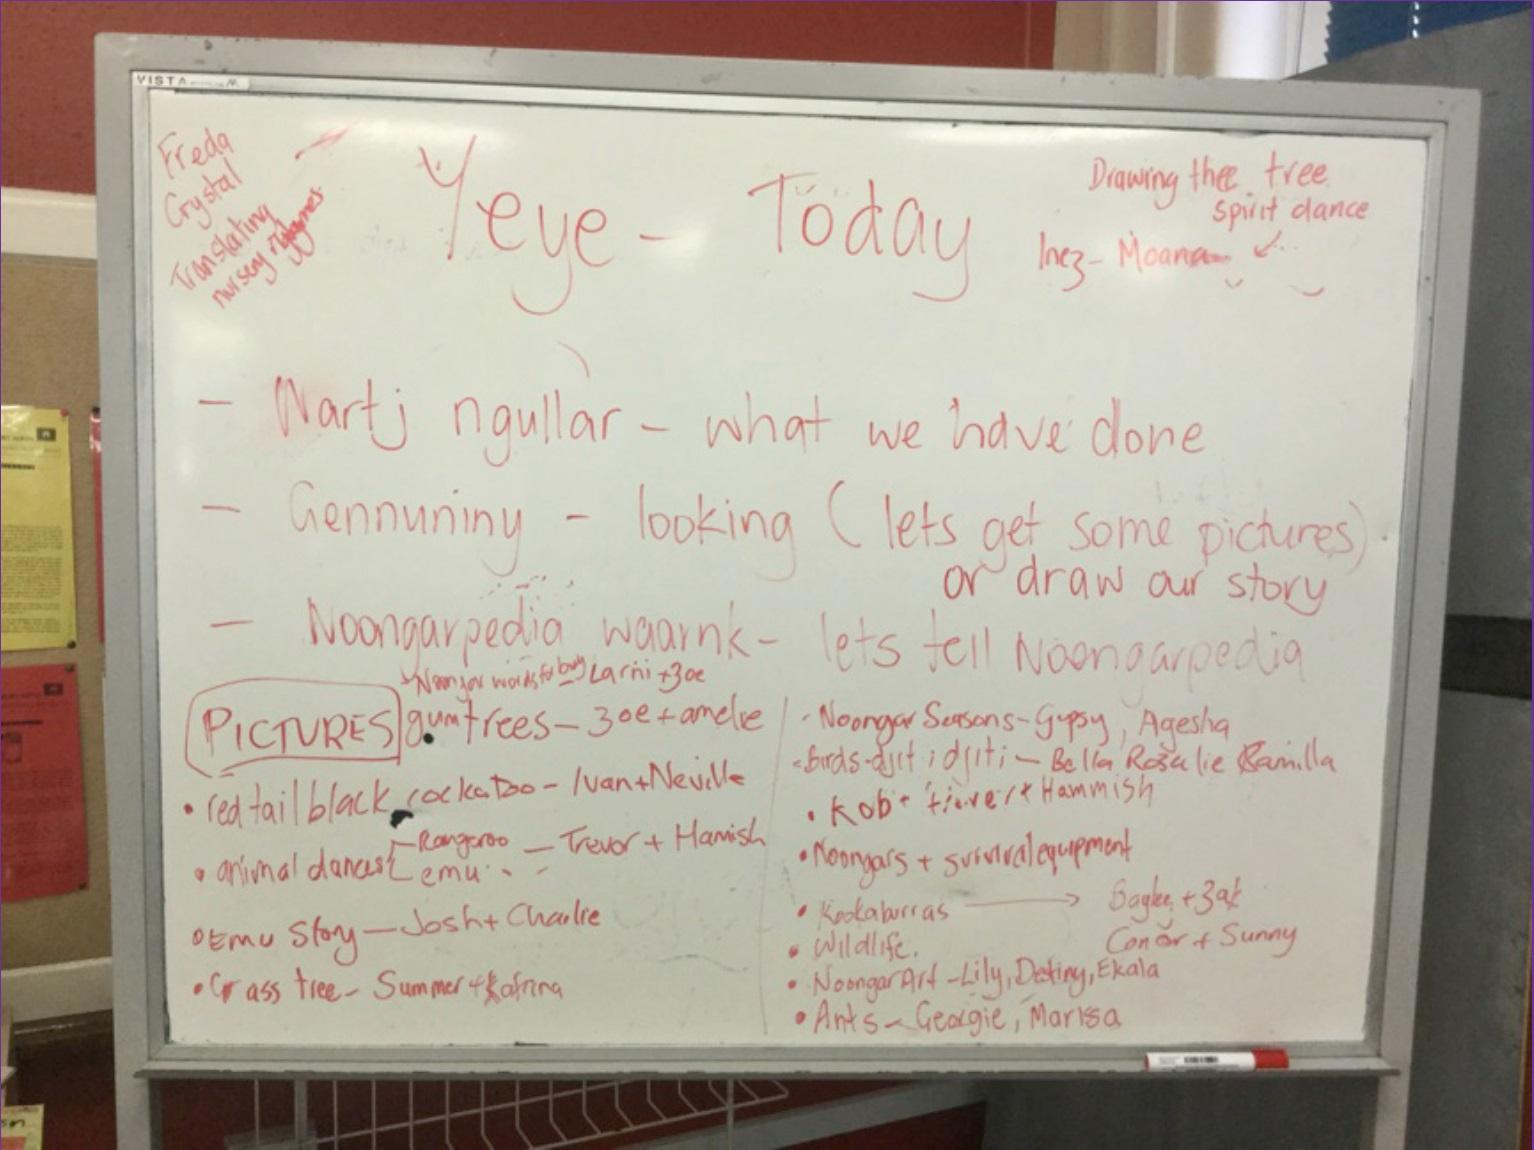 VISTA
Freda
Crystal
Translating
nursery rhymes
Yeye - Today
Drawing thee tree
spirit dance
Inez - Moana
- Nartj ngullar - what we have done
- Gennuniny - looking (lets get some pictures)
or draw our story
- Noongarpedia waarnk - lets tell Noongarpedia
Noongar words for Larni + Zoe
PICTURES gumtrees - Zoe + amelie
• red tail black cockatoo - Ivan + Neville
• animal dances Kangaroo - Trevor + Hamish
emu
• Emu Story - Josh + Charlie
• Grass tree - Summer + Katrina
• Noongar Seasons - Gypsy, Agesha
• Birds - djiti djiti - Bella Rosalie Kamilla
• Kob + Hammish
• Noongars + survival equipment
• Kookaburras → + Zak
• Wildlife. Conor + Sunny
• Noongar Art - Lily, Destiny, Ekala
• Ants - Georgie, Marisa